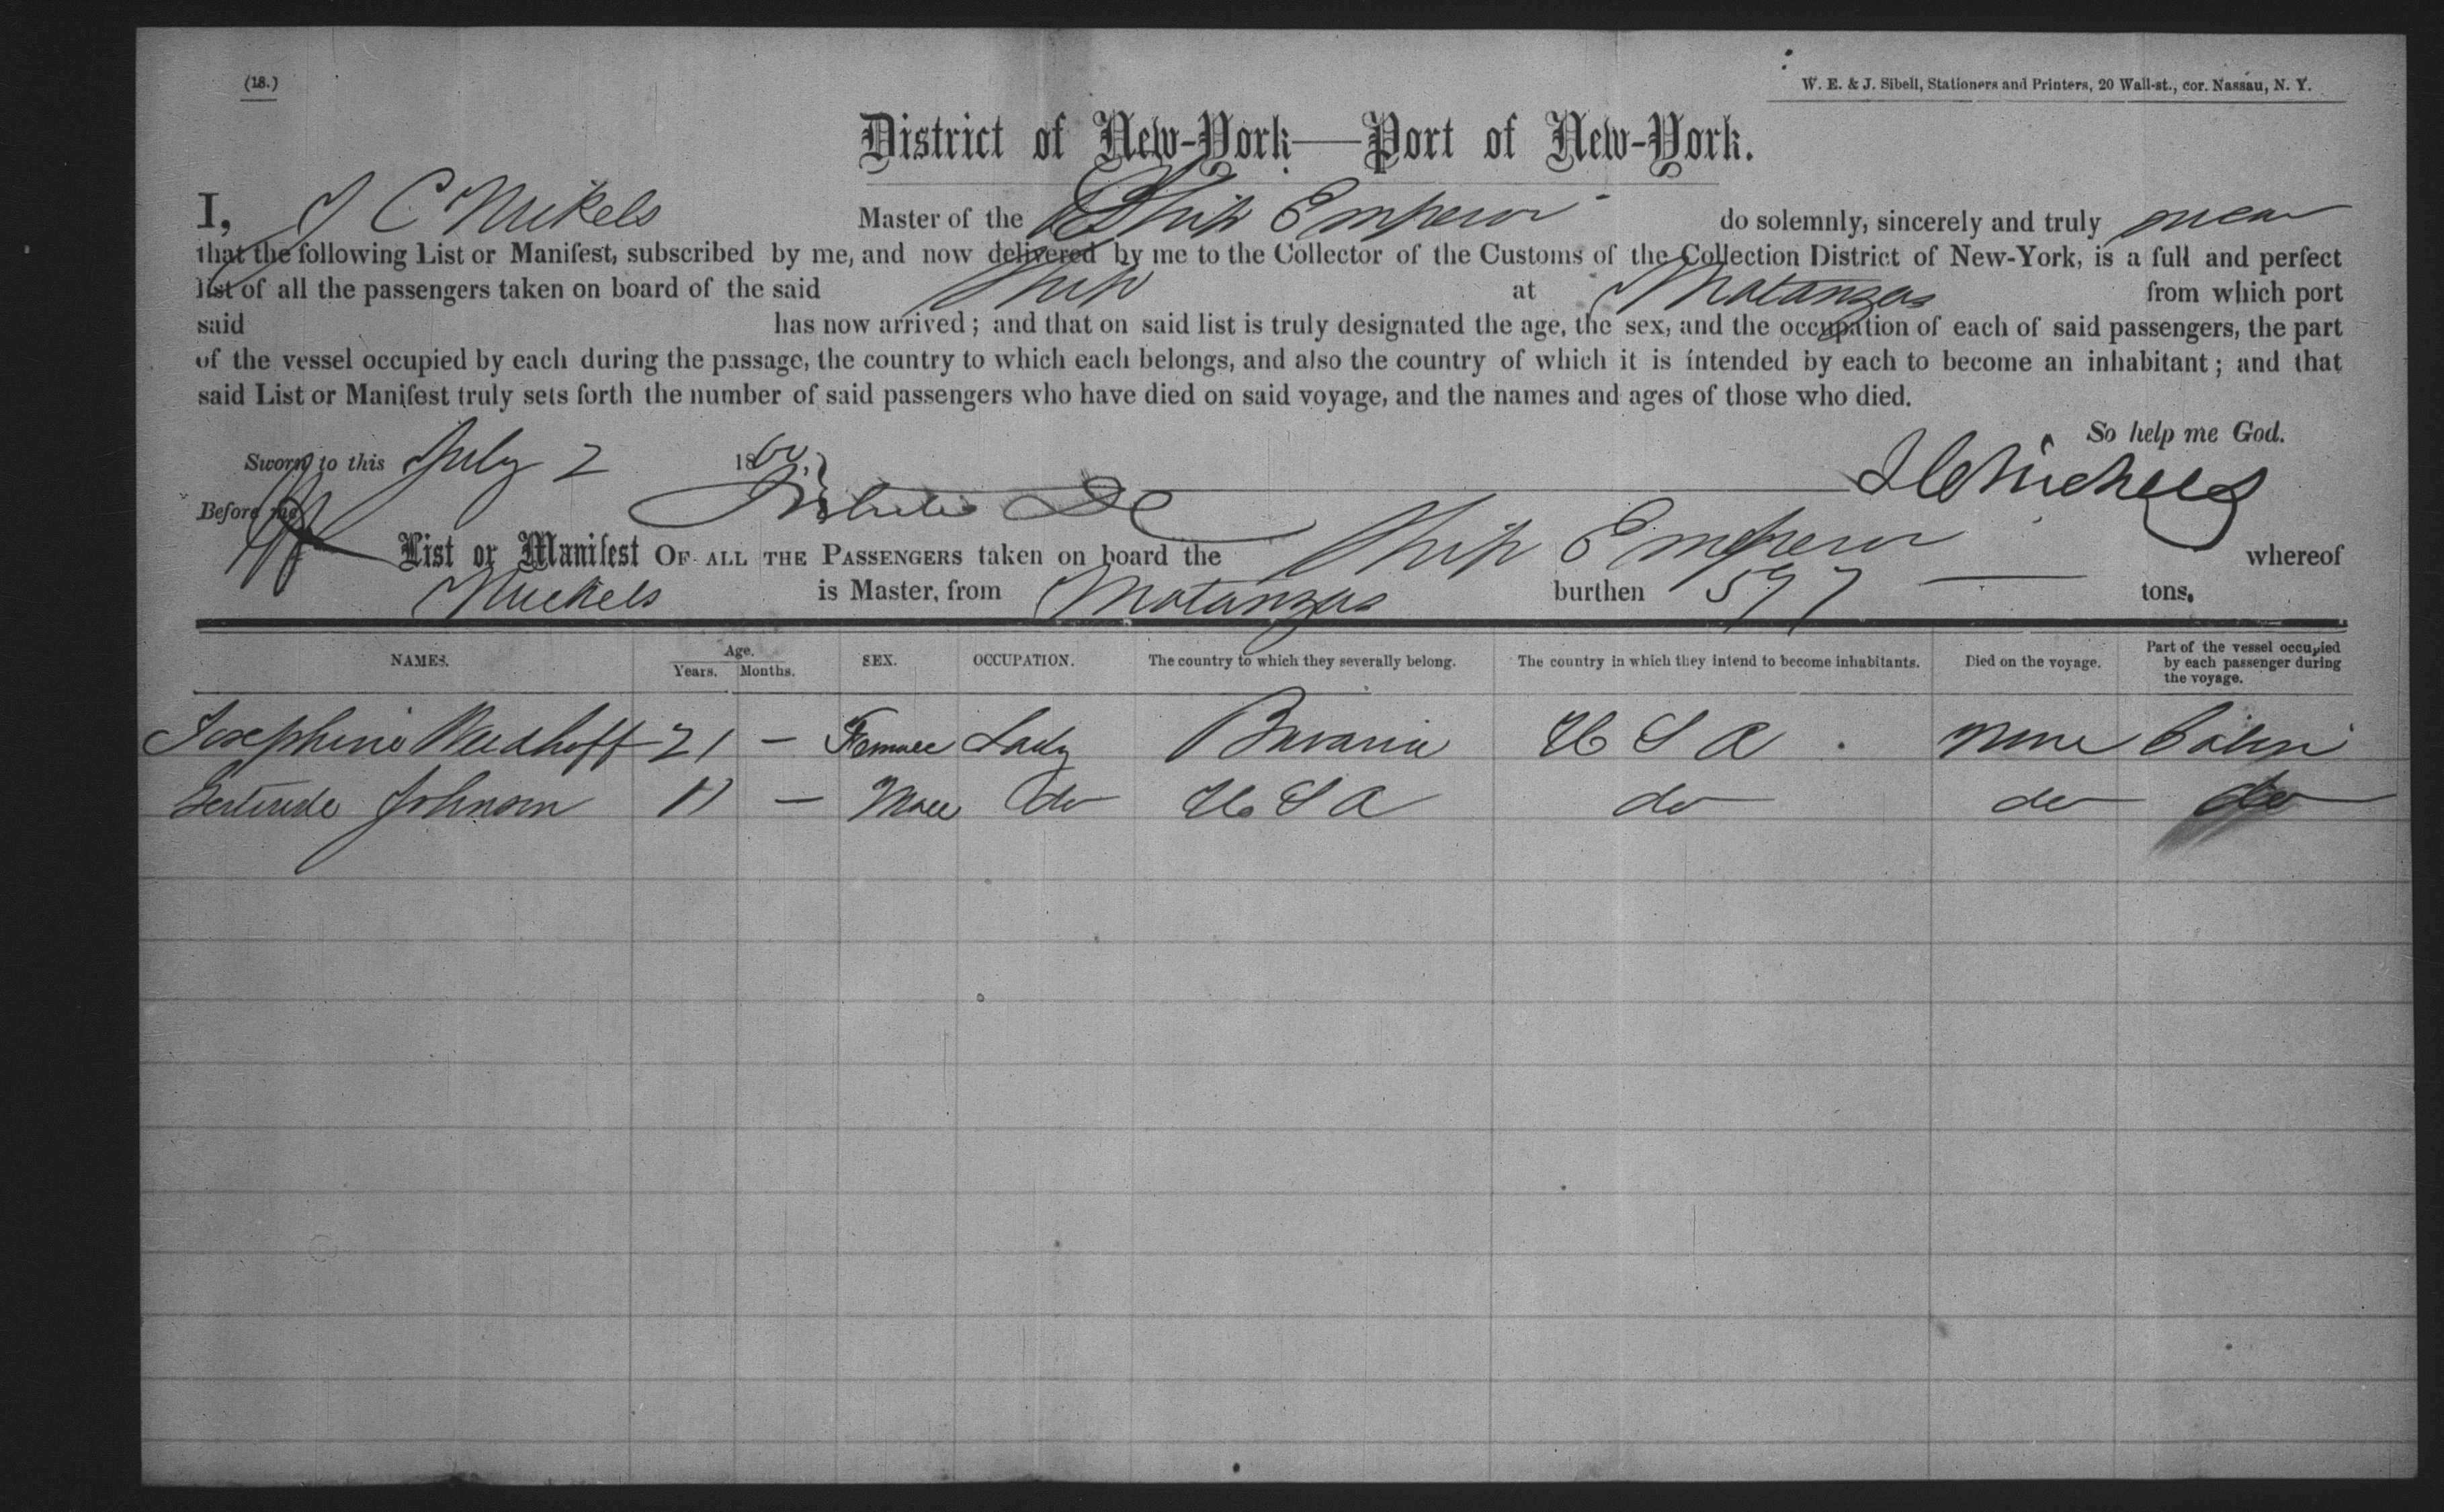 (18.)
W. E. & J. Sibell, Stationers and Printers, 20 Wall-st., cor. Nassau, N. Y.
District of New-York—Port of New-York.
I, J C Mickels Master of the Ship Emperor do solemnly, sincerely and truly swear
that the following List or Manifest, subscribed by me, and now delivered by me to the Collector of the Customs of the Collection District of New-York, is a full and perfect
list of all the passengers taken on board of the said Ship at Matanzas from which port
said has now arrived; and that on said list is truly designated the age, the sex, and the occupation of each of said passengers, the part
of the vessel occupied by each during the passage, the country to which each belongs, and also the country of which it is intended by each to become an inhabitant; and that
said List or Manifest truly sets forth the number of said passengers who have died on said voyage, and the names and ages of those who died.
So help me God.
Sworn to this July 2 1860
Before me
List or Manifest OF ALL THE PASSENGERS taken on board the Ship Emperor whereof
Mickels is Master, from Matanzas burthen 597 tons.
NAMES. Age. Years. Months. SEX. OCCUPATION. The country to which they severally belong. The country in which they intend to become inhabitants. Died on the voyage. Part of the vessel occupied by each passenger during the voyage.
Josephine 21 — Female Lady Bavaria U S A none Cabin
Gertrude Johnson 11 — Male do U S A do do do